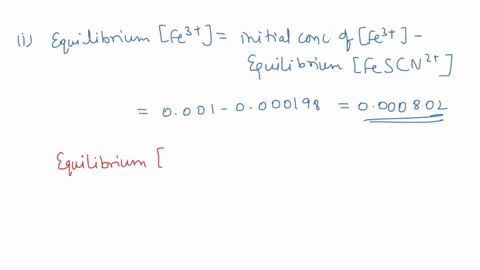 (i) Equilibrium [Fe³⁺] = initial conc of [Fe³⁺] -
Equilibrium [FeSCN²⁺]
= 0.001 - 0.000198 = 0.000802
Equilibrium [